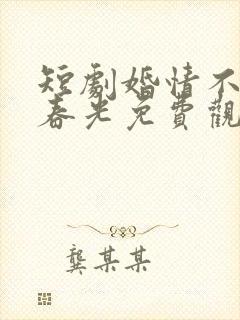 短劇婚情不
春光免費觀
龔某某